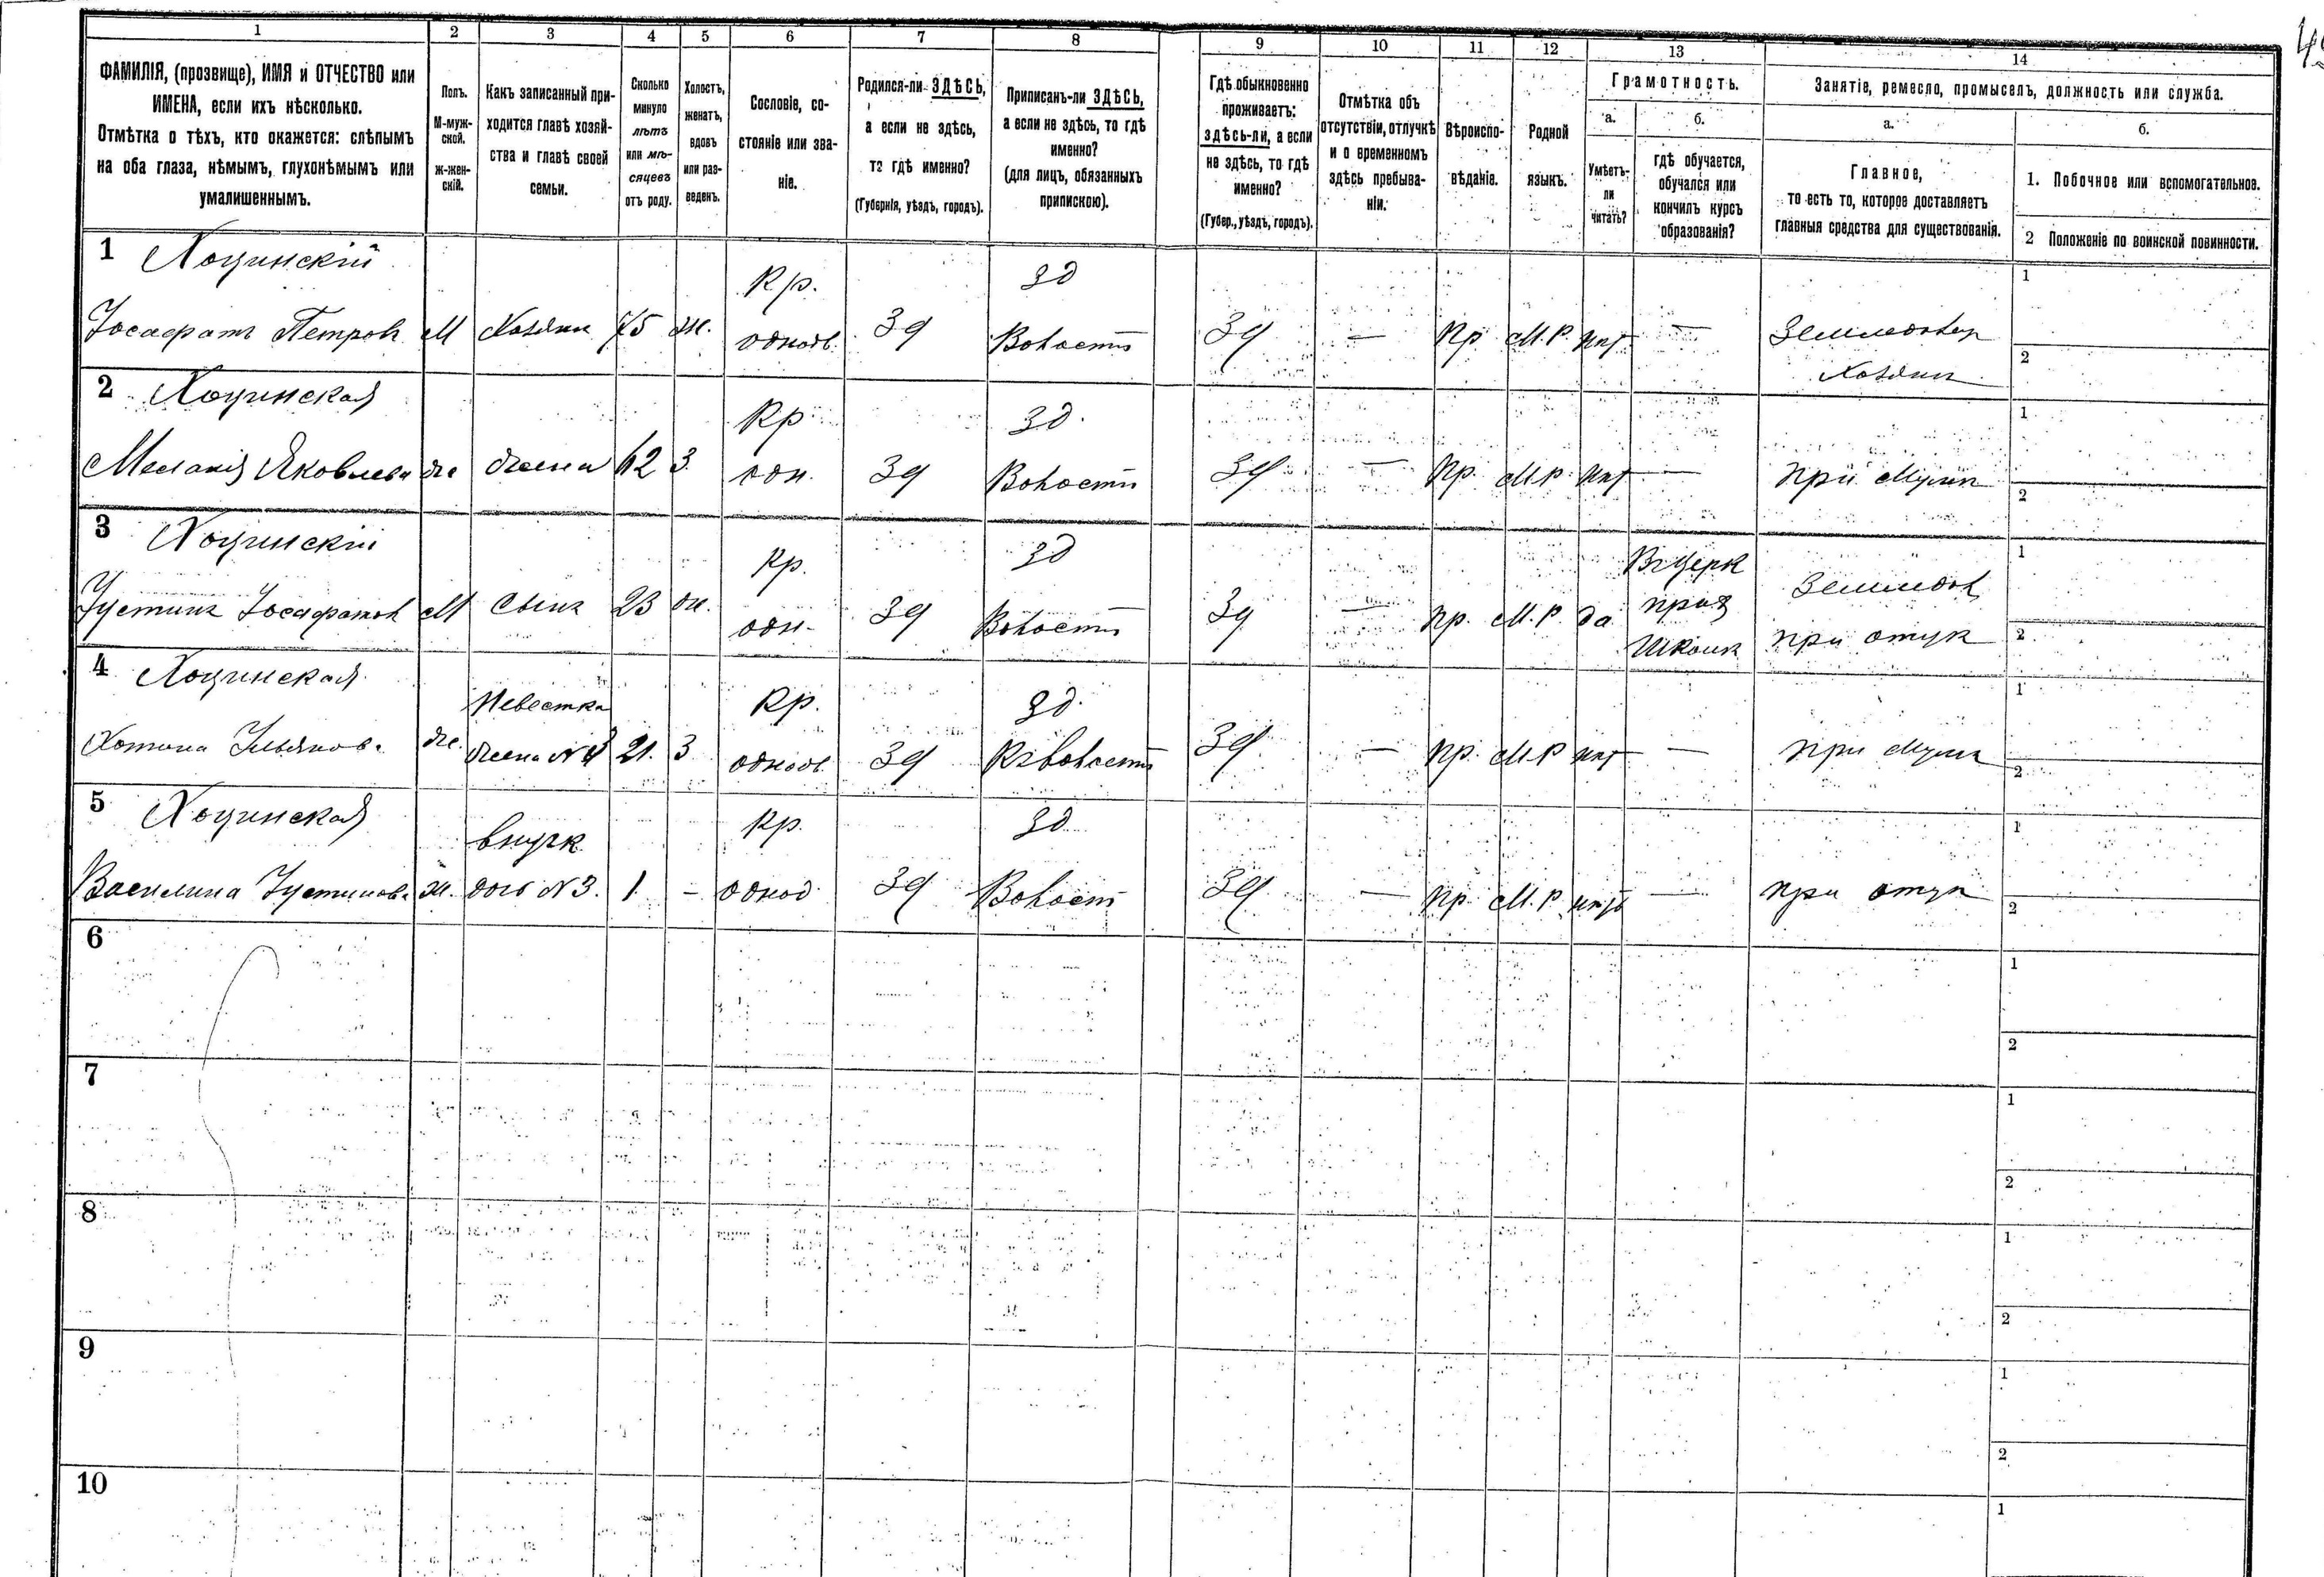 1 2 3 4 5 6 7 8 9 10 11 12 13 14
ФАМИЛІЯ, (прозвище), ИМЯ и ОТЧЕСТВО или
ИМЕНА, если ихъ нѣсколько.
Отмѣтка о тѣхъ, кто окажется: слѣпымъ
на оба глаза, нѣмымъ, глухонѣмымъ или
умалишеннымъ.
Полъ.
М-муж-
ской.
ж-жен-
скій.
Какъ записанный при-
ходится главѣ хозяй-
ства и главѣ своей
семьи.
Сколько
минуло
лѣтъ
или мѣ-
сяцевъ
отъ роду.
Холостъ,
женатъ,
вдовъ
или раз-
веденъ.
Сословіе, со-
стояніе или зва-
ніе.
Родился-ли ЗДѢСЬ,
а если не здѣсь,
то гдѣ именно?
(Губернія, уѣздъ, городъ).
Приписанъ-ли ЗДѢСЬ,
а если не здѣсь, то гдѣ
именно?
(для лицъ, обязанныхъ
припискою).
Гдѣ обыкновенно
проживаетъ:
здѣсь-ли, а если
не здѣсь, то гдѣ
именно?
(Губер., уѣздъ, городъ).
Отмѣтка объ
отсутствіи, отлучкѣ
и о временномъ
здѣсь пребыва-
ніи.
Вѣроиспо-
вѣданіе.
Родной
языкъ.
Грамотность.
а.
Умѣетъ-
ли
читать?
б.
гдѣ обучается,
обучался или
кончилъ курсъ
образованія?
Занятіе, ремесло, промыселъ, должность или служба.
а.
Главное,
то есть то, которое доставляетъ
главныя средства для существованія.
б.
1. Побочное или вспомогательное.
2 Положеніе по воинской повинности.
1 Хоцинскій Кр. Зд 1
Іосафатъ Петров М Хозяин 75 ж. однодв. Зд Волости Зд — Пр М.Р. нѣт — Земледѣл
Хозяин 2
2 Хоцинская Кр Зд. 1
Меланія Яковлева же жена 62 З. одн. Зд Волости Зд — Пр. М.Р. нѣт — при мужѣ 2
3 Хоцинскій Кр. Зд Въ Церк 1
Устинъ Іосафатов М Сынъ 23 же. одн. Зд Волости Зд — Пр. М.Р. да прих Земледѣл
Школѣ при отцѣ 2
4 Хоцинская Невестка Кр. Зд. 1
жена N 3 21. З однодв. Зд Къ волости Зд — Пр. М.Р нѣт — при мужѣ 2
5 Хоцинская внучк Кр. Зд 1
Василина Устинова ж. дочь N 3. 1. – однод. Зд Волост Зд — Пр М.Р нѣтъ — при отцѣ 2
6 1
2
7 1
2
8 1
2
9 1
2
10 1